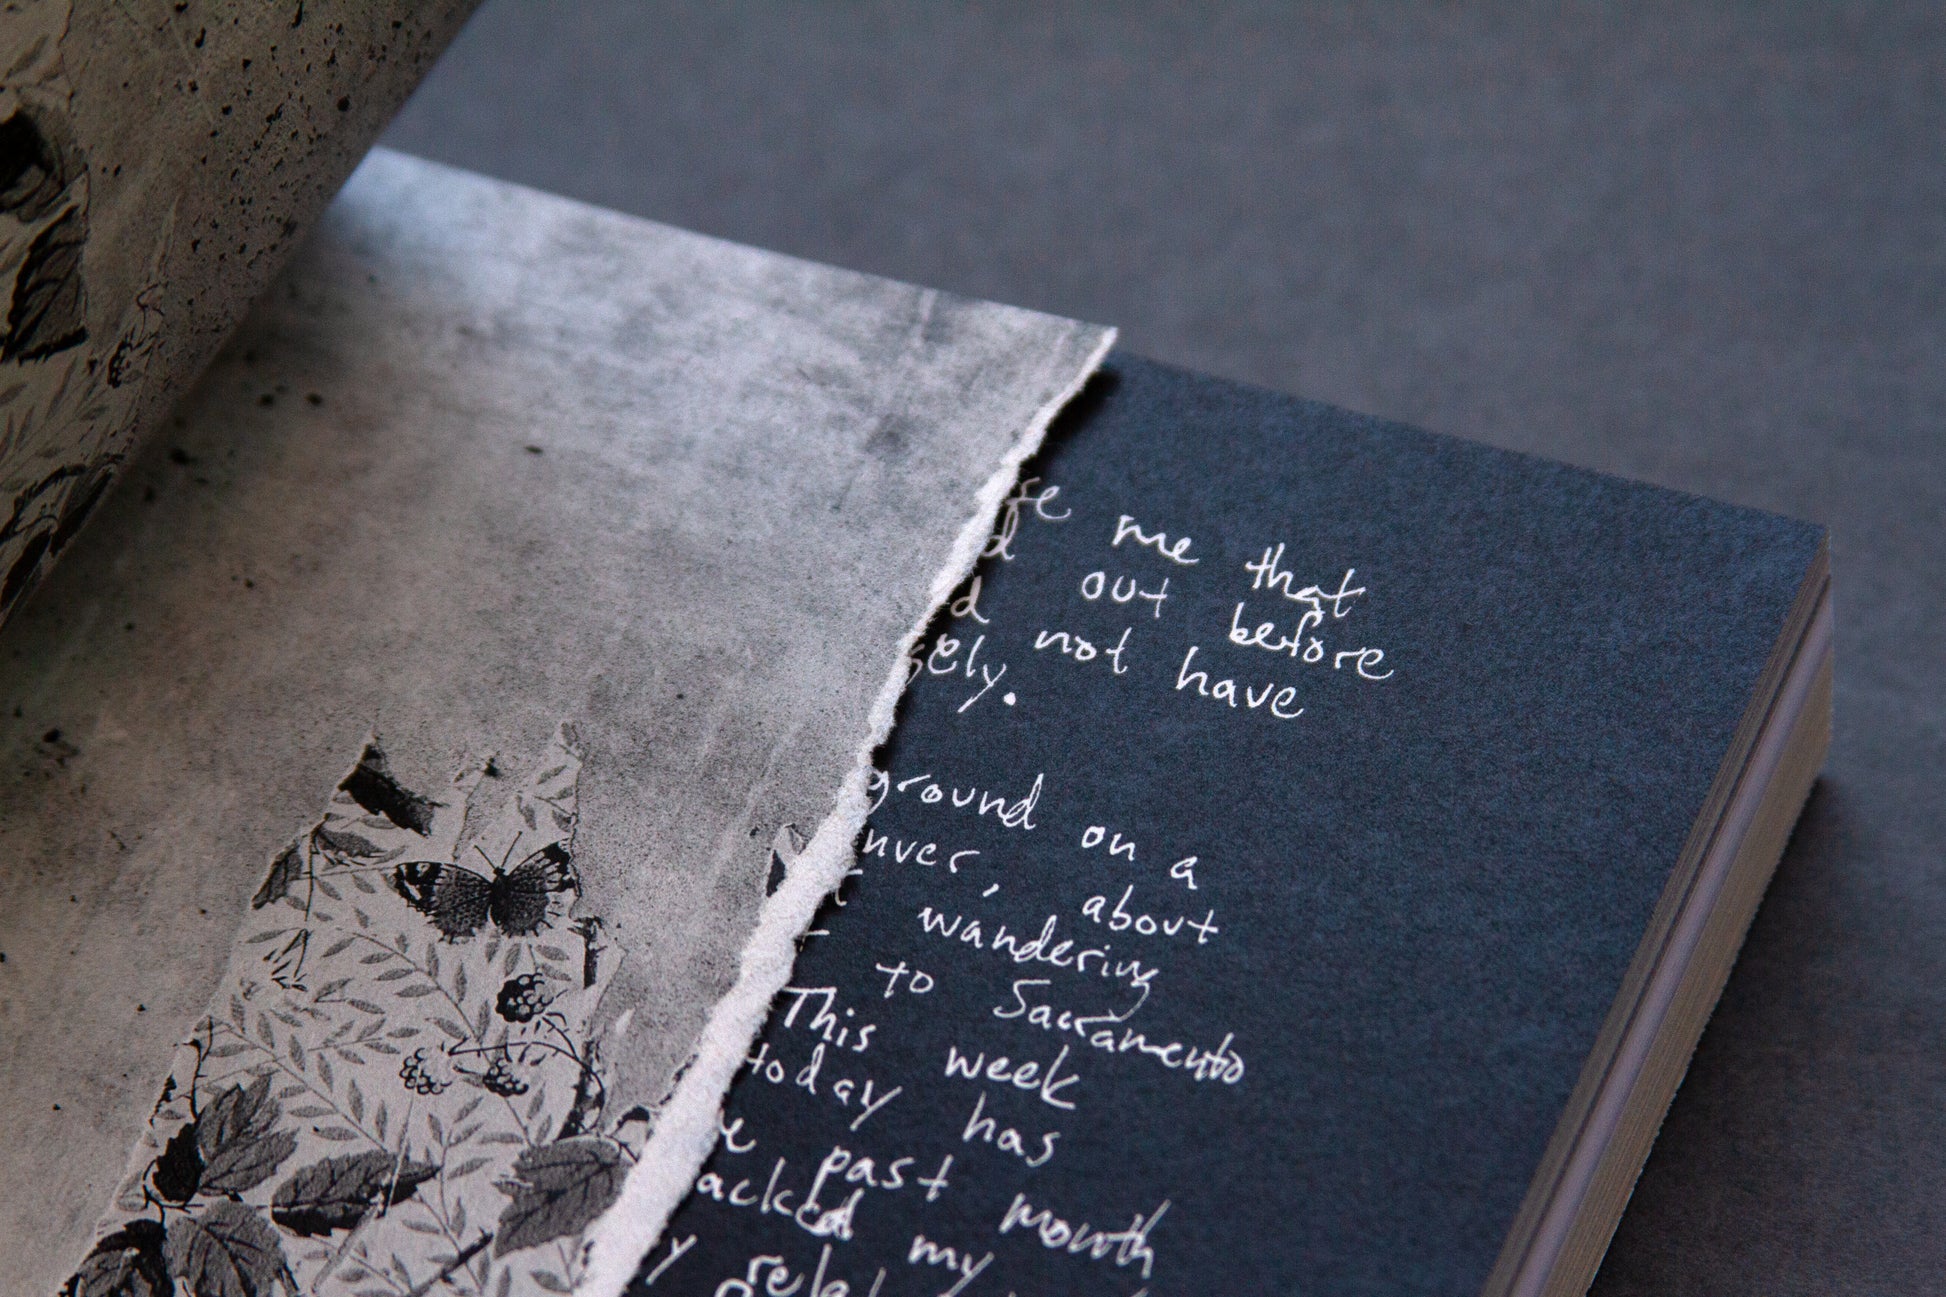 me that
out before
not have
sely.
ground on a
nver, about
wandering
to Sacramento
This week
today has
e past month
acked my
y